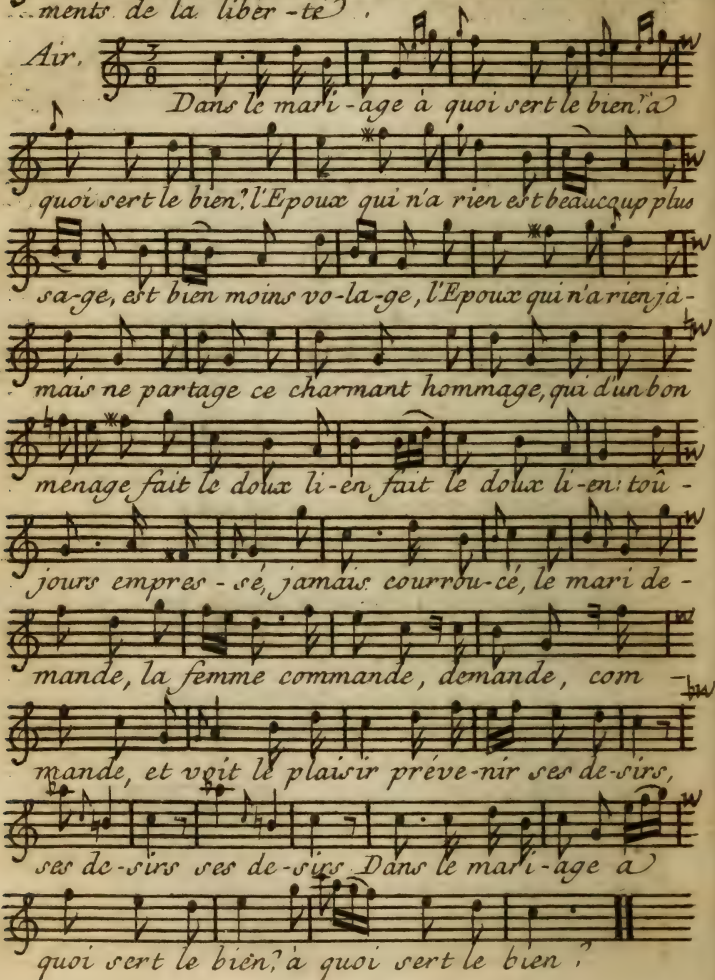 ments de la liber-té.
Air. 3/8
Dans le mari-age à quoi sert le bien? à
quoi sert le bien? l'Epoux qui n'a rien est beaucoup plus
sa-ge, est bien moins vo-la-ge, l'Epoux qui n'a rien ja-
mais ne partage ce charmant hommage, qui d'un bon
ménage fait le doux li-en fait le doux li-en: toû-
jours empres-sé, jamais courrou-cé, le mari de-
mande, la femme commande, demande, com
mande, et voit le plaisir préve-nir ses de-sirs,
ses de-sirs ses de-sirs Dans le mari-age a
quoi sert le bien? à quoi sert le bien?